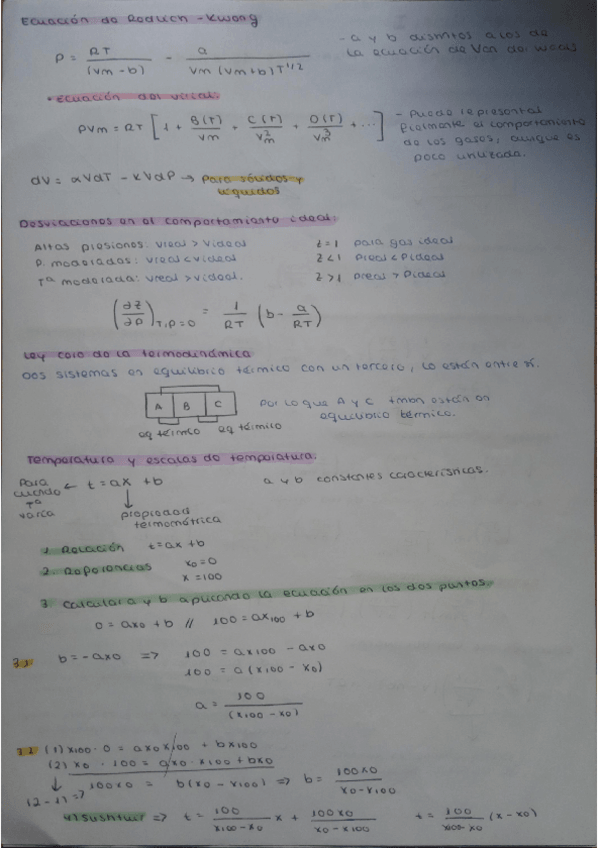 Ecuación de Redlich - Kwong
P = RT/(Vm - b) - a/(Vm (Vm + b) T^1/2)
- a y b distintos a los de la ecuación de Van der Waals
• Ecuación del virial.
PVm = RT [1 + B(T)/Vm + C(T)/Vm^2 + D(T)/Vm^3 + ...]
- Puede representar
fielmente el comportamiento
de los gases, aunque es
poco utilizada.
dV = αVdT - κVdP → Para sólidos y
líquidos
Desviaciones en el comportamiento ideal:
Altas presiones: Vreal > Videal
z = 1 para gas ideal
P. moderadas: Vreal < Videal
z < 1 Preal < Pideal
Tª moderada: Vreal > Videal.
z > 1 Preal > Pideal
(∂Z/∂P)T,P=0 = 1/RT (b - a/RT)
Ley cero de la termodinámica
Dos sistemas en equilibrio térmico con un tercero, lo están entre sí.
A B C
Por lo que A y C tmbn están en
equilibrio térmico.
eq térmico eq térmico
Temperatura y escalas de temperatura.
Para
cuando
Tª
varía
← t = ax + b
a y b constantes características.
propiedad
termométrica
1. Relación t = ax + b
2. Referencias x0 = 0
x = 100
3. Calcular a y b aplicando la ecuación en los dos puntos.
0 = ax0 + b // 100 = ax100 + b
3.1. b = -ax0 => 100 = ax100 - ax0
100 = a(x100 - x0)
a = 100/(x100 - x0)
3.2 (1) x100 · 0 = ax0x100 + bx100
(2) x0 · 100 = ax0 · x100 + bx0
(2-1) => 100x0 = b(x0 - x100) => b = 100x0/(x0 - x100)
4) Sustituir => t = 100/(x100 - x0) x + 100x0/(x0 - x100) t = 100/(x100 - x0) (x - x0)